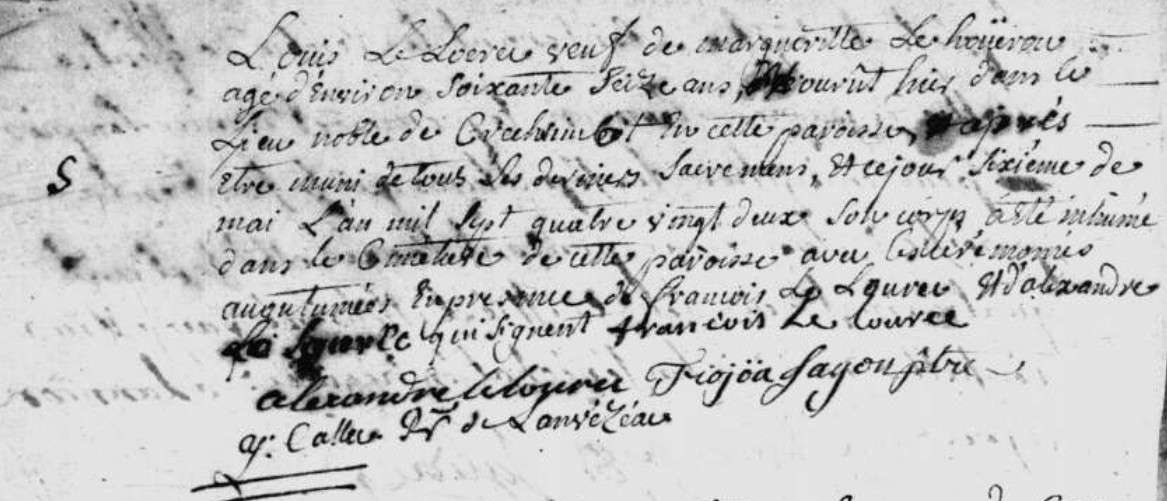 Louis Le Loeree veuf de margueritte Le hoüerou
agé d'Environ Soixante Seize ans, Mourût hier dans le
Lieu noble de En cette paroisse, après
S
Etre muni de tous Ses derniers Sacremens, Et ce jour Sixiéme de
mai L'an mil Sept quatre vingt deux Son corps a été inhumé
dans le Cimetiere de cette paroisse avec les ceremonies
acoutumées En presence de francois Le Louree Et d'alexandre
Le Louree qui Signent francois Le louree
alexandre le louree fagon ptre
Callec de Lanvézéac